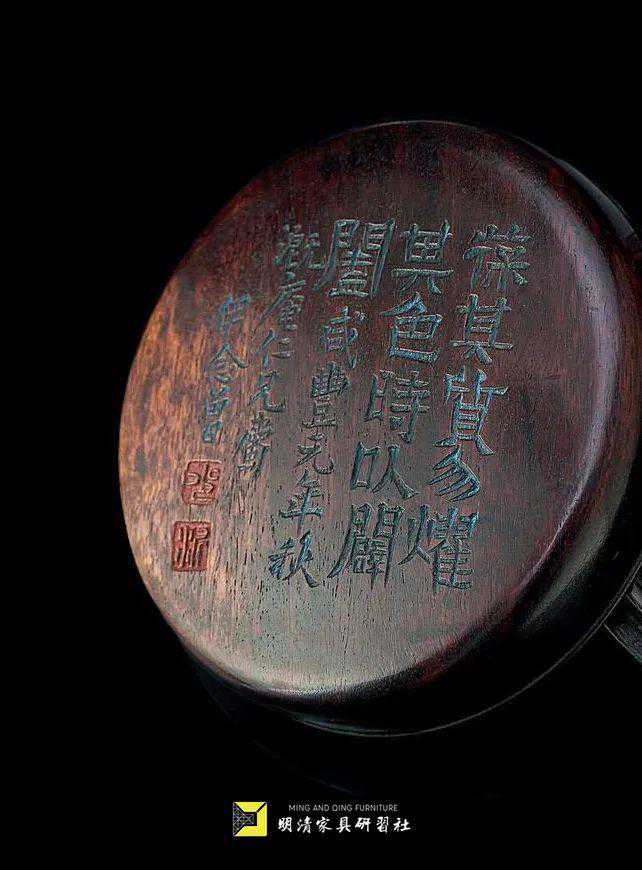 葆其質勿燿
其色時以闢
闔咸豐元年秋
溉庵仁兄屬
念曾
MING AND QING FURNITURE
明清家具研習社